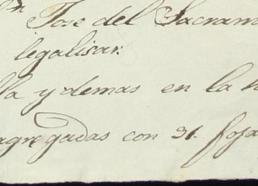 Jose del Sacram
legalisar.
lla y demas en la h
agregadas con 31. foja